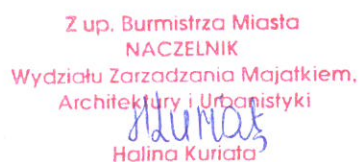 Z up. Burmistrza Miasta
NACZELNIK
Wydziału Zarzadzania Majatkiem,
Architektury i Urbanistyki
HKuriata
Halina Kuriata